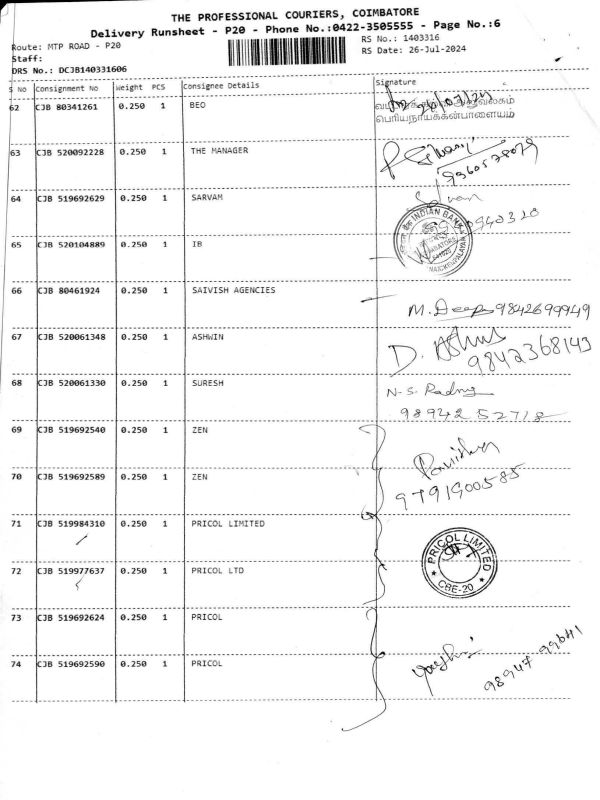 THE PROFESSIONAL COURIERS, COIMBATORE
Delivery Runsheet - P20 - Phone No.:0422-3505555 - Page No.:6
Route: MTP ROAD - P20
RS No.: 1403316
Staff:
RS Date: 26-Jul-2024
DRS No.: DCJB140331606
S No Consignment No Weight PCS Consignee Details Signature
62 CJB 80341261 0.250 1 BEO
பெரியநாயக்கன்பாளையம்
63 CJB 520092228 0.250 1 THE MANAGER
64 CJB 519692629 0.250 1 SARVAM
INDIAN BANK
65 CJB 520104889 0.250 1 IB
66 CJB 80461924 0.250 1 SAIVISH AGENCIES
M. Deepa 9842699949
67 CJB 520061348 0.250 1 ASHWIN
D. 9842368143
68 CJB 520061330 0.250 1 SURESH
N-S.
98942 52718
69 CJB 519692540 0.250 1 ZEN
70 CJB 519692589 0.250 1 ZEN
9791900585
71 CJB 519984310 0.250 1 PRICOL LIMITED
PRICOL LIMITED
CBE-20
72 CJB 519977637 0.250 1 PRICOL LTD
73 CJB 519692624 0.250 1 PRICOL
74 CJB 519692590 0.250 1 PRICOL
98947 99641